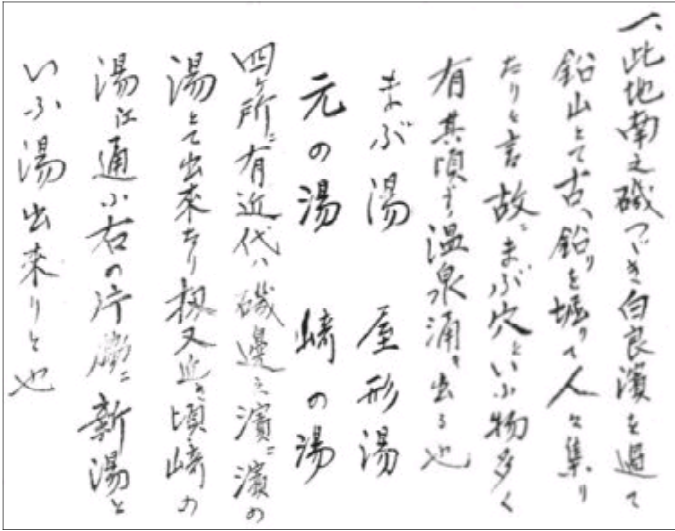 一、此地南之磯つゞき白良濱を過て
鉛山とて古、鉛りを堀りて人々集り
たりと言故ニまぶ穴といふ物多く
有其頃ゟ温泉涌き出る也
まぶ湯　屋形湯
元の湯　崎の湯
四ヶ所ニ有近代ハ磯邊之濱ニ濱の
湯とて出來たり扨又近き頃崎の
湯江通ふ右の片側ニ新湯と
いふ湯出来りと也